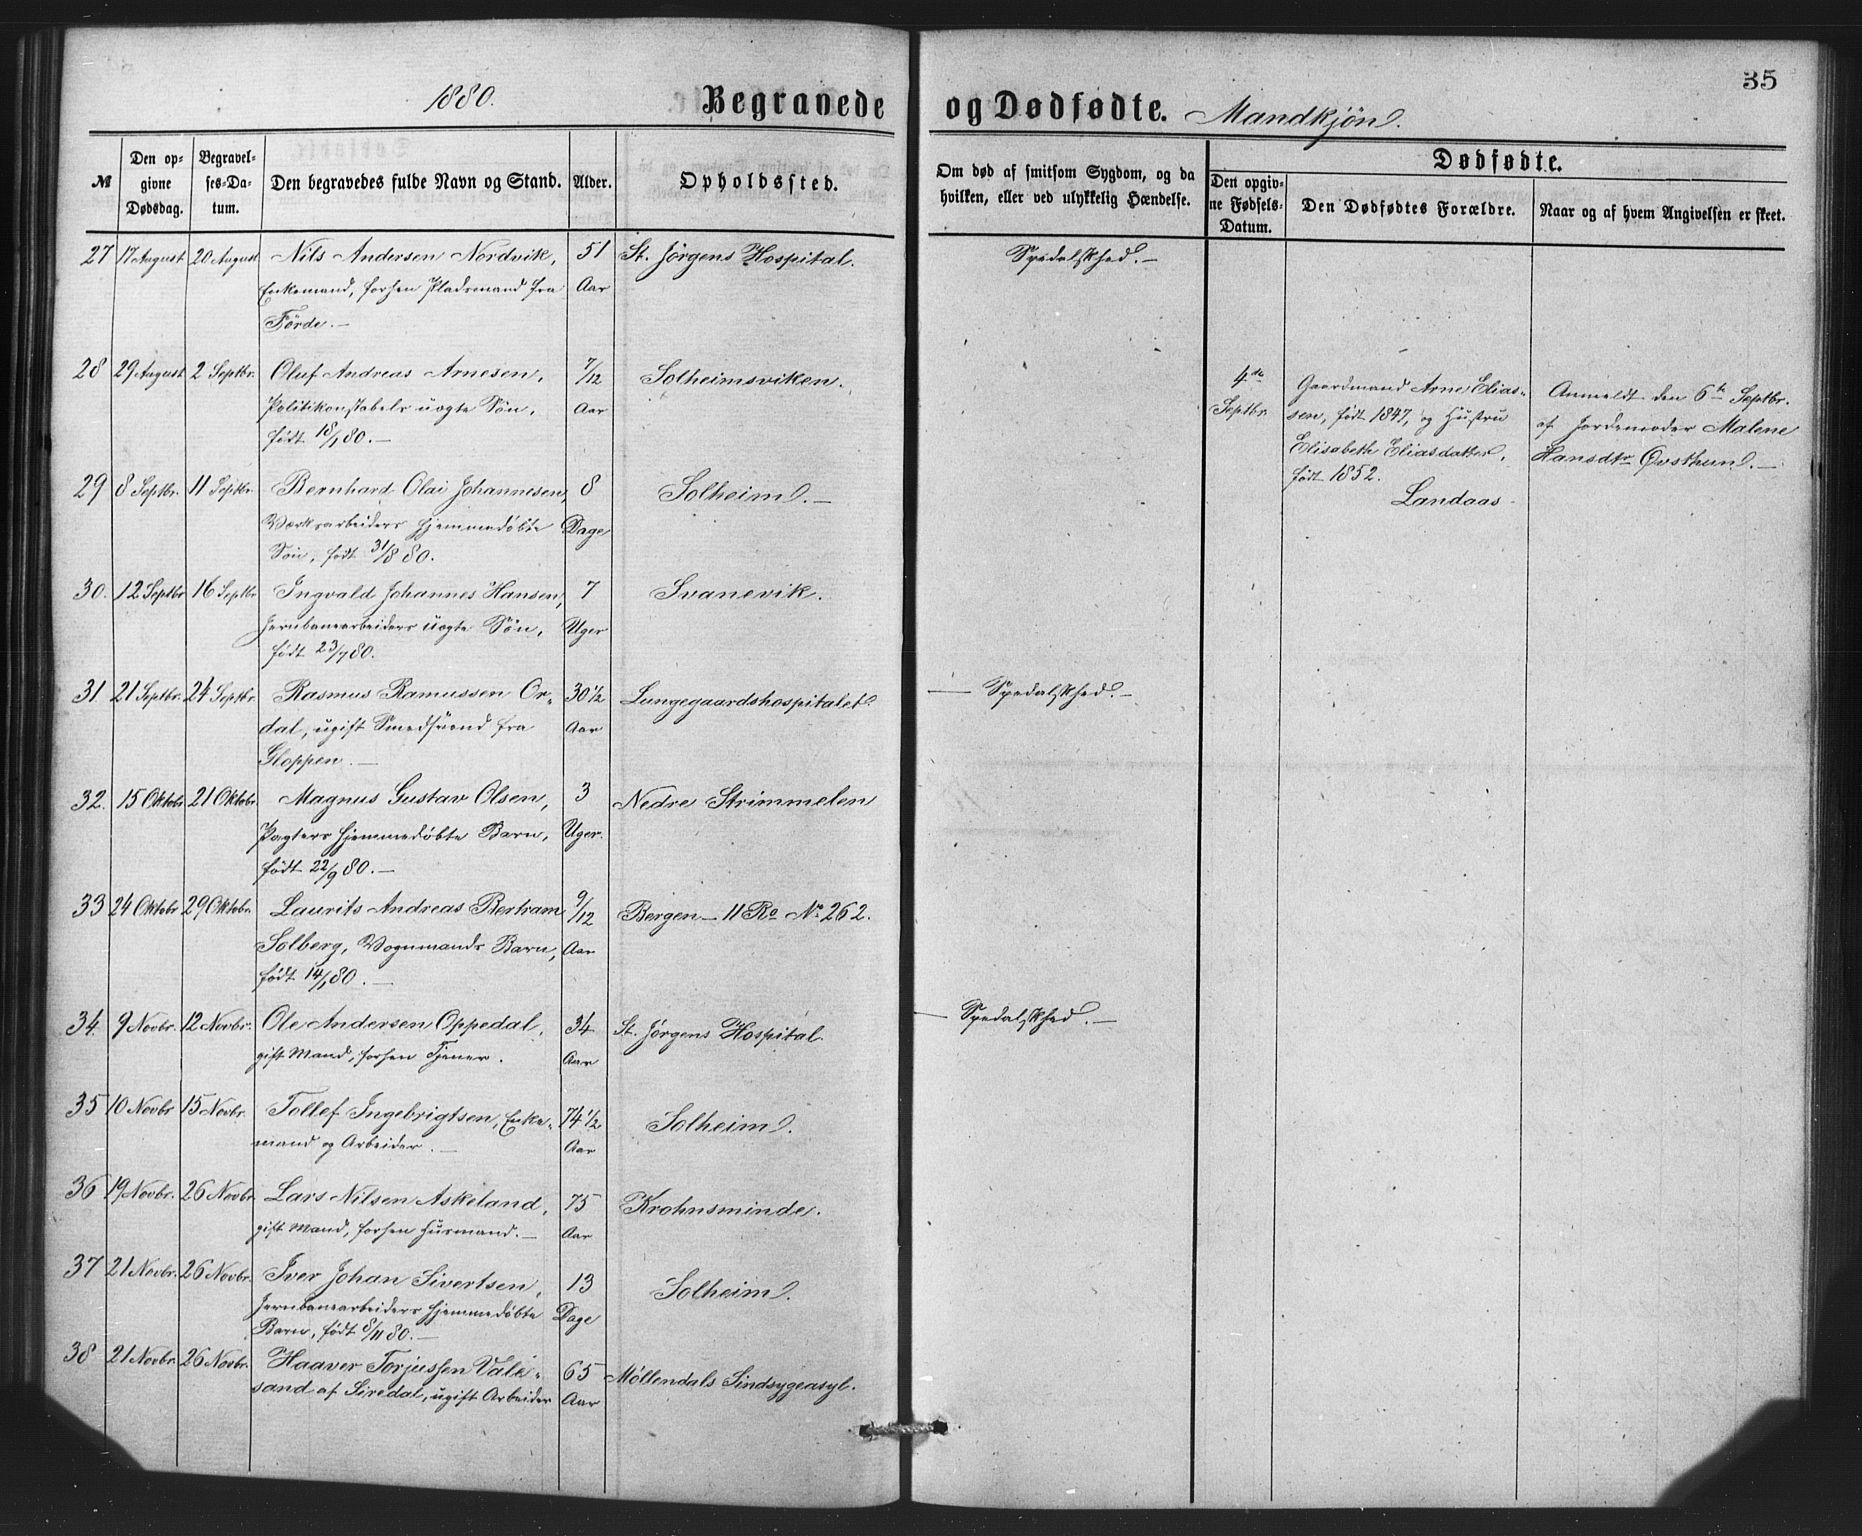 1880. Begravede og Dødfødte. Mandkjön. 35
№
Den opgivne Dødsdag.
Begravelses-Datum.
Den begravedes fulde Navn og Stand.
Alder.
Opholdssted.
Om død af smitsom Sygdom, og da hvilken, eller ved ulykkelig Hændelse.
Dødfødte.
Den opgivne Fødsels-Datum.
Den Dødfødtes Forældre.
Naar og af hvem Angivelsen er skeet.
27 17 August 20 August Nils Andersen Nordvik, 51 St. Jörgens Hospital. Spedalskhed. —
Enkemand, forhen Pladsmand fra Aar
Förde. —
28 29 August 2 Septbr. Oluf Andreas Arnesen, 7/12 Solheimsviken.
Politikonstabels uægte Sön, Aar
født 18/1 80. —
4de Septbr.
Gaardmand Arne Elias-
sen, født 1847, og Hustru
Elisabeth Eliasdatter,
født 1852.
Landaas
Anmeldt den 6te Septbr.
af Jordemoder Malene
Hansdtr Øvsthun. —
29 8 Septbr. 11 Septbr. Bernhard Olai Johannesen, 8 Solheim. —
Værksarbeiders hjemmedøbte Dage
Sön, født 31/8 80.
30. 12 Septbr 16 Septbr Ingvald Johannes Hansen, 7 Svanevik.
Jernbanearbeiders uægte Sön, Uger
født 23/7 80.
31. 21 Septbr. 24 Septbr. Rasmus Ramussen Or- 30 1/2 Lungegaardshospitalet. — Spedalskhed. —
dal, ugift Smedsvend fra Aar
Gloppen. —
32. 15 Oktobr 21 Oktobr Magnus Gustav Olsen, 3 Nedre Strimmelen
Pagters hjemmedøbte Barn, Uger.
født 22/9 80. —
33 24 Oktobr 29 Oktobr. Laurits Andreas Bertram 9/12 Bergen — 11 Ro № 262.
Solberg, Vognmands Barn, Aar
født 14/1 80. —
34. 9 Novbr. 12 Novbr. Ole Andersen Oppedal, 34 St. Jørgens Hospital. — Spedalskhed. —
gift Mand, forhen Tjener. Aar
35 10 Novbr 15 Novbr. Tollef Ingebrigtsen, Enke- 74 1/2 Solheim.
mand og Arbeider. — Aar
36 19 Novbr. 26 Novbr. Lars Nilsen Askeland, 75 Krohnsminde.
gift Mand, forhen Husmand. — Aar
37 21 Novbr. 26 Novbr. Iver Johan Sivertsen, 13 Solheim.
Jernbanearbeiders hjemmedøbte Dage
Barn, født 8/11 80. —
38 21 Novbr. 26 Novbr. Haaver Torjussen Vale- 65 Møllendals Sindsygeasyl.
sand af Siredal, ugift Arbeider Aar